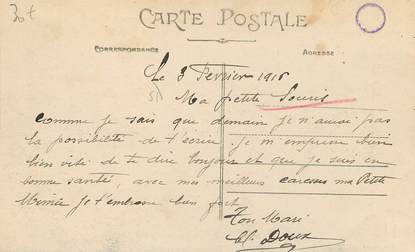 30 t
CARTE POSTALE
CORRESPONDANCE
ADRESSE
Le 3 Fevrier 1915
Ma petite Souris
Comme je sais que demain je n'aurai pas
la possibilité de t'ecrire je m'empresse bien
bien vite de te dire bonjour et que je suis en
bonne santé, avec mes meilleurs caresses ma Petite
Mimie je t'embrasse bien fort
Ton Mari
Doux